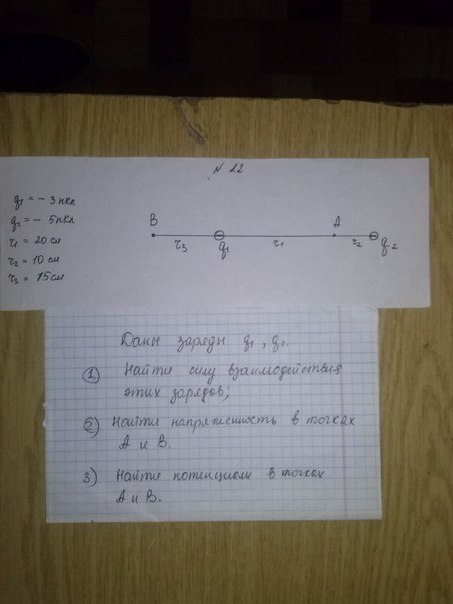 N 22
q₁ = - 3 нкл
q₂ = - 5 нкл
r₁ = 20 см
r₂ = 10 см
r₃ = 15 см
B A
r₃ q₁ r₁ r₂ q₂
Даны заряды q₁, q₂.
1) Найти силу взаимодействия
этих зарядов;
2) Найти напряженность в точках
A и B.
3) Найти потенциалы в точках
A и B.